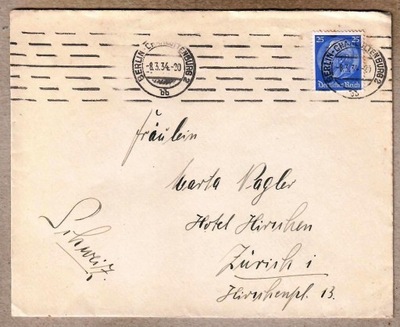 BERLIN-CHARLOTTENBURG 2
-8.3.34.-20
bb
25 25
Deutsches Reich
BERLIN-CHARLOTTENBURG 2
Fräulein
Marta Vogler
Hotel Hirschen
Zürich 1
Hirschenpl. 13.
Schweiz.